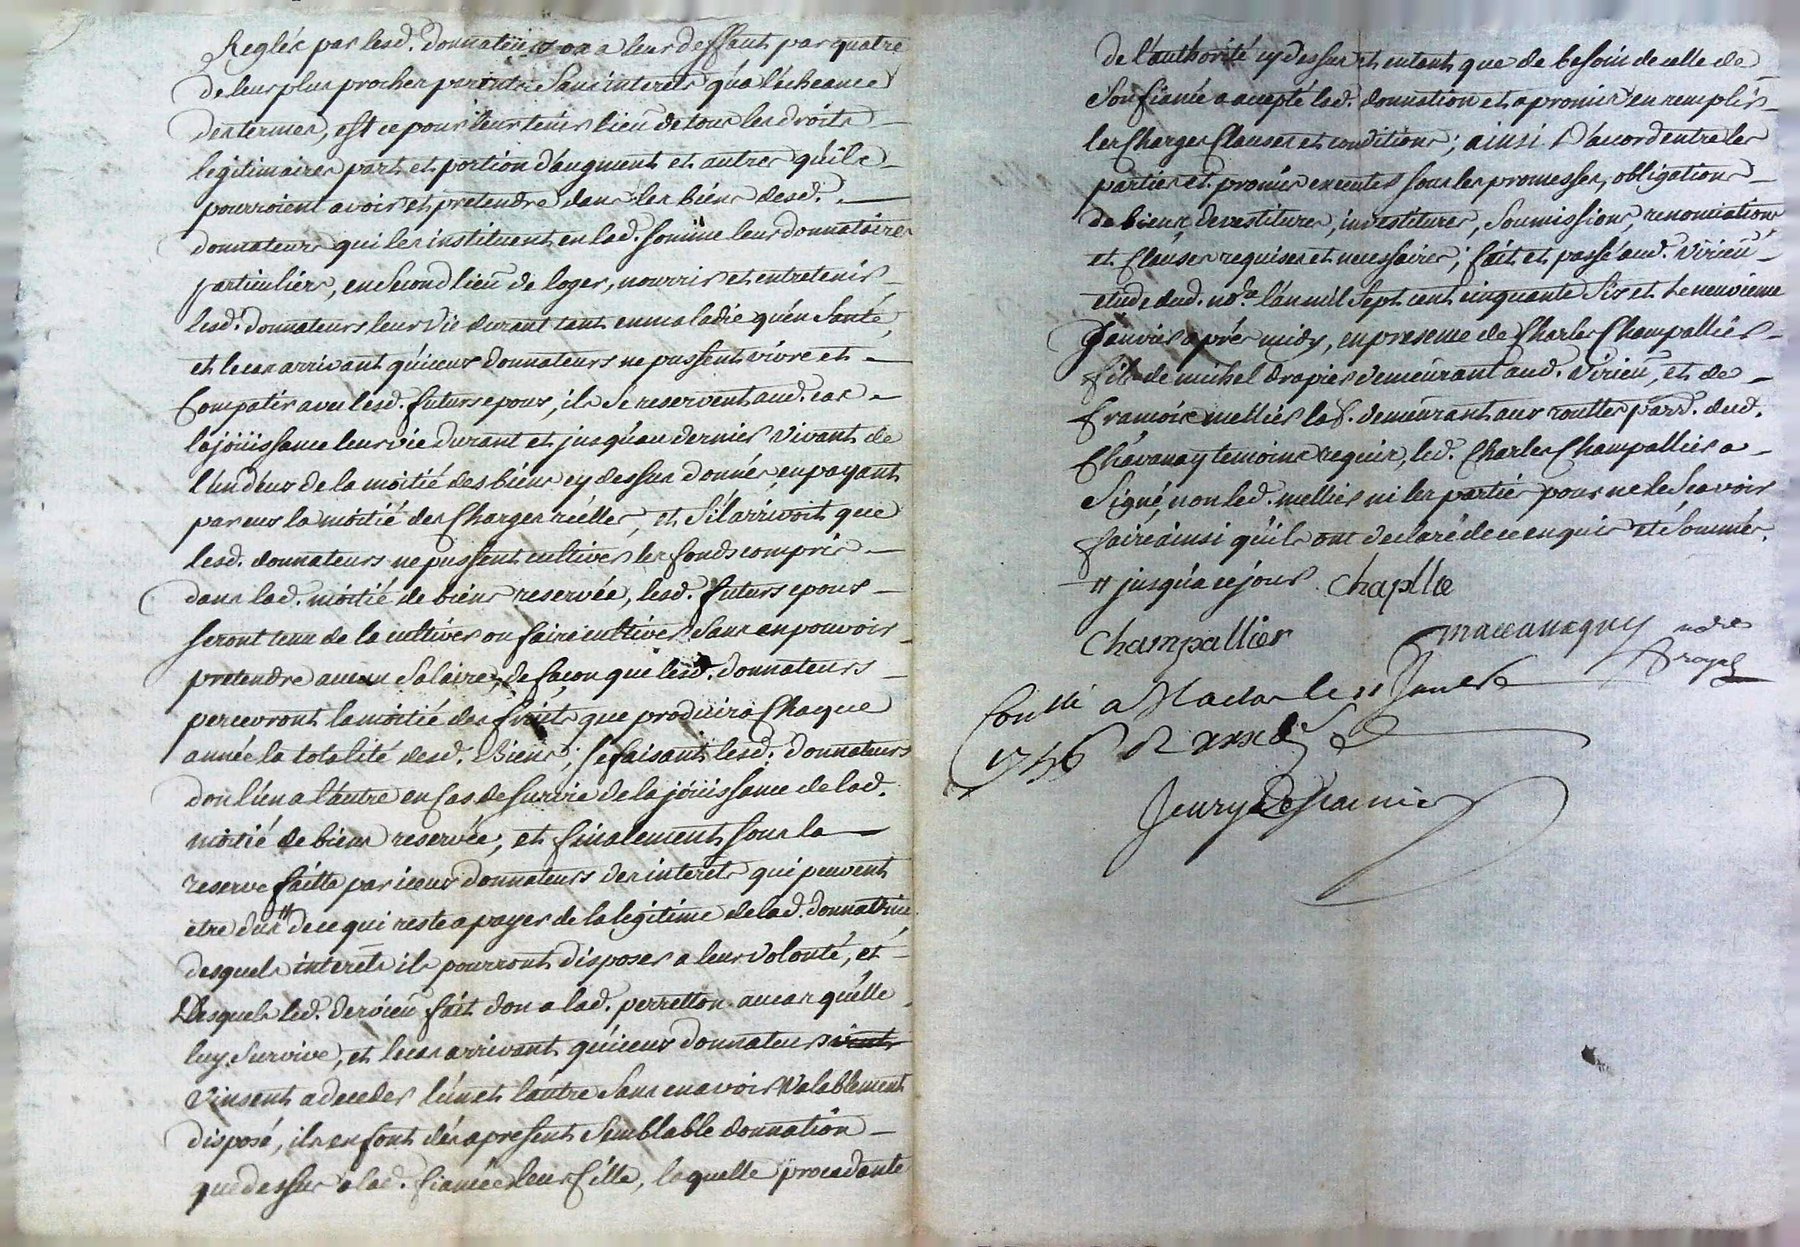 Reglée par lesd. donnateurs ou a leur deffaut par quatre
de leur plus procher parents sans interets qu'a l'écheance
des termes, est ce pour leur tenir lieu de tous les droits
legitimaires part et portion d'augment et autres qu'ils
pourroient avoir et pretendre dans les biens desd.
donnateurs qui les instituent en lad. somme leur donnataires
particuliers, en second lieu de loger, nourrir et entretenir
lesd. donnateurs leur vie durant tant en maladie qu'en santé,
et le cas arrivant qu'iceux donnateurs ne pussent vivre et
Compatir avec lesd. futurs epoux, ils se reservent aud. cas
la joüissance leur vie durant et jusqu'au dernier vivant de
l'un d'eux de la moitié des biens cy dessus donnés en payant
par eux la moitié des Charges réelles, et s'il arrivoit que
lesd. donnateurs ne pussent cultiver les fonds compris
dans lad. moitié de biens reservée, lesd. futurs epoux
seront tenu de la cultiver ou faire cultiver sans en pouvoir
pretendre aucun salaire, de façon que lesd. donnateurs
percevront la moitié des fruits que produira Chaque
année la totalité desd. Biens; se faisant lesd. donnateurs
don l'un a l'autre en Cas de survie de la joüissance de lad.
moitié de biens reservée; et finalement sous la
reserve faitte par iceux donnateurs des interets qui peuvent
etre dus # de ce qui reste a payer de la legitime de lad. donnatrice
desquels interets ils pourront disposer a leur volonté, et
Desquels led. dervieu fait don a lad. perretton au cas qu'elle
luy survive, et le cas arrivant qu'iceux donnateurs
vinsent a deceder l'un et l'autre sans en avoir valablement
disposé, ils en font dés a present semblable donnation
que dessus a lad. fiancée leur fille, laquelle procedante
de l'authorité cy dessus et entant que de besoin de celle de
son fiancé a accepté lad. donnation et a promis en remplir
les Charges Clauses et conditions; ainsi d'accord entre les
parties et promis executer sous les promesses, obligations
de biens, devestitures, investitures, soumissions, renonciations
et Clauses requises et necessaires; fait et passé aud. virieu
etude dud. no.re l'an mil sept cent cinquante six et le neuvieme
Janvier aprés midy, en presence de Charles Champallier
fils de michel drapier demeurant aud. virieu, et de
francois mellier lab. demeurant aux routtes parr. dud.
Chavanay temoins requis, led. Charles Champallier a
signé, non led. mellier ni les parties pour ne le sçavoir
faire ainsi qu'ils ont declaré de ce enquis et sommés.
# jusqu'a ce jour
Champallier
no.re royal
Con.llé a le 11 Janvier
1756